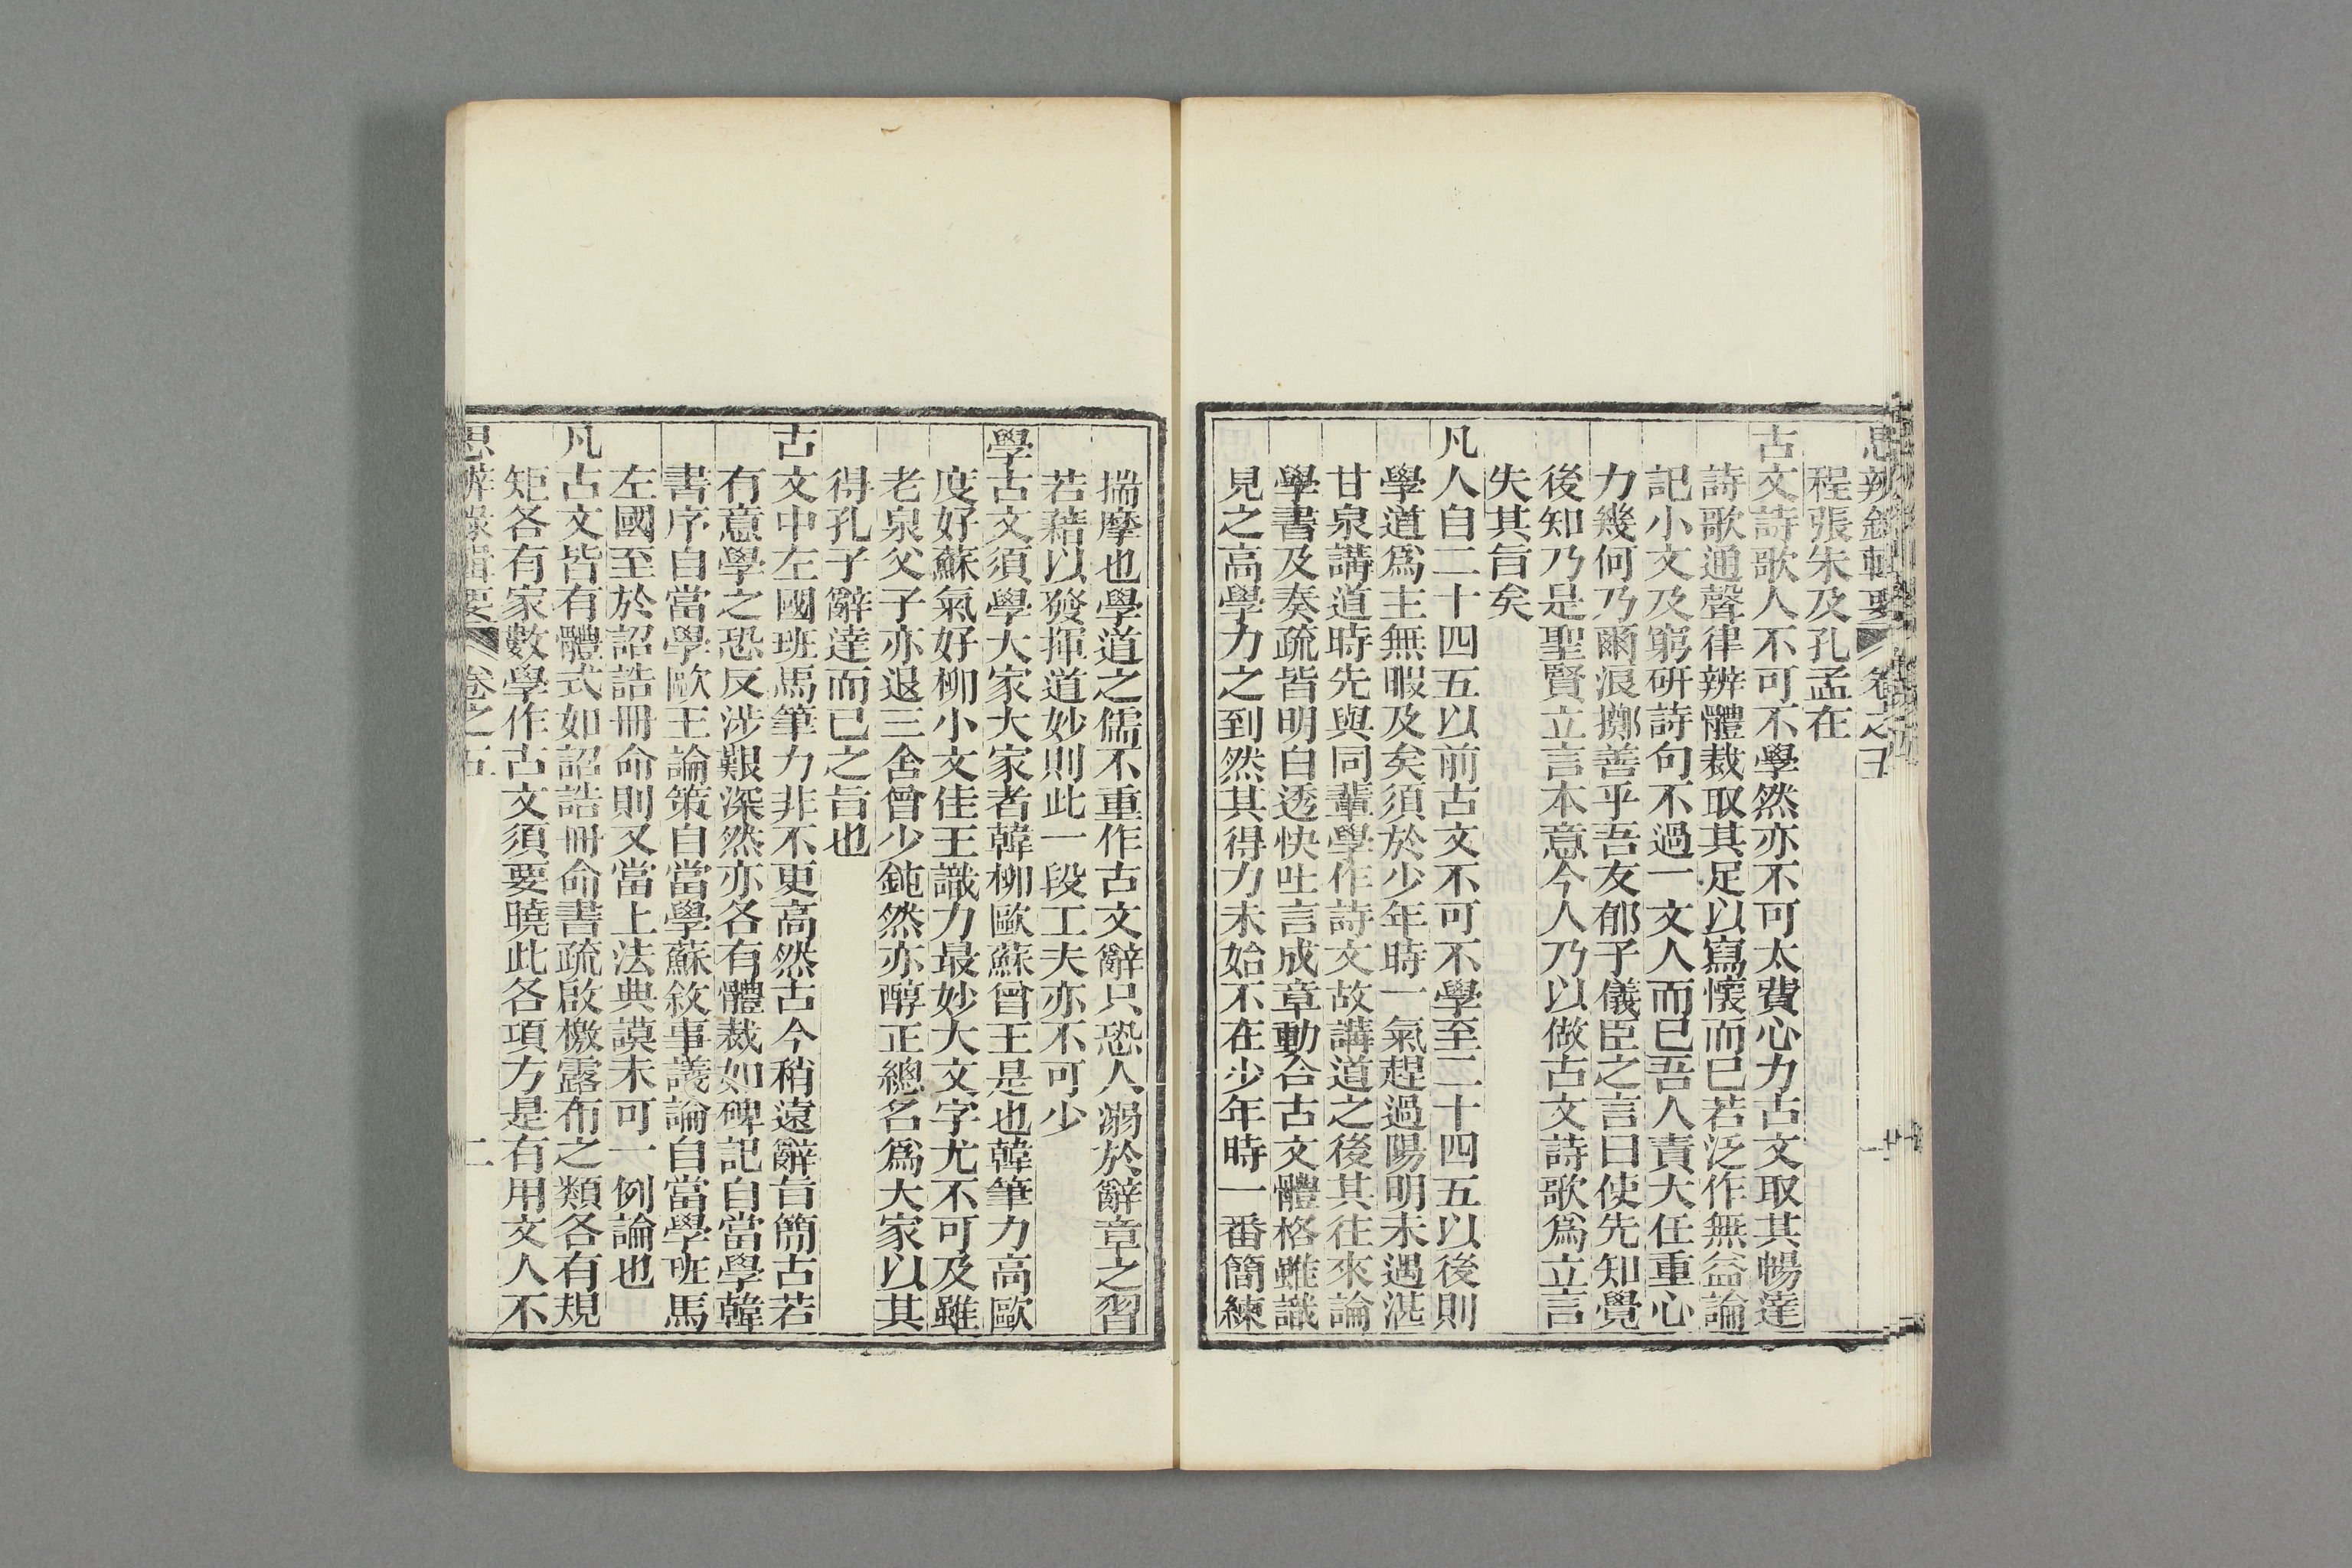 思辨錄輯要 卷之五
程張朱及孔孟在
古文詩歌人不可不學然亦不可太費心力古文取其暢達
詩歌通聲律辨體裁取其足以寫懷而已若泛作無益論
記小文及窮研詩句不過一文人而已吾人責大任重心
力幾何乃爾浪擲善乎吾友郁子儀臣之言曰使先知覺
後知乃是聖賢立言本意今人乃以做古文詩歌爲立言
失其旨矣
凡人自二十四五以前古文不可不學至二十四五以後則
學道爲主無暇及矣須於少年時一氣趕過陽明未遇湛
甘泉講道時先與同輩學作詩文故講道之後其往來論
學書及奏疏皆明白透快吐言成章動合古文體格雖識
見之高學力之到然其得力未始不在少年時一番簡練
揣摩也學道之儒不重作古文辭只恐人溺於辭章之習
若藉以發揮道妙則此一段工夫亦不可少
學古文須學大家大家者韓柳歐蘇曾王是也韓筆力高歐
度好蘇氣好柳小文佳王識力最妙大文字尤不可及雖
老泉父子亦退三舍曾少鈍然亦醇正總名爲大家以其
得孔子辭達而已之旨也
古文中左國班馬筆力非不更高然古今稍遠辭旨簡古若
有意學之恐反涉艱深然亦各有體裁如碑記自當學韓
書序自當學歐王論策自當學蘇敘事議論自當學班馬
左國至於詔誥冊命則又當上法典謨未可一例論也
凡古文皆有體式如詔誥冊命書疏啟檄露布之類各有規
矩各有家數學作古文須要曉此各項方是有用文人不
思辨錄輯要 卷之五 二